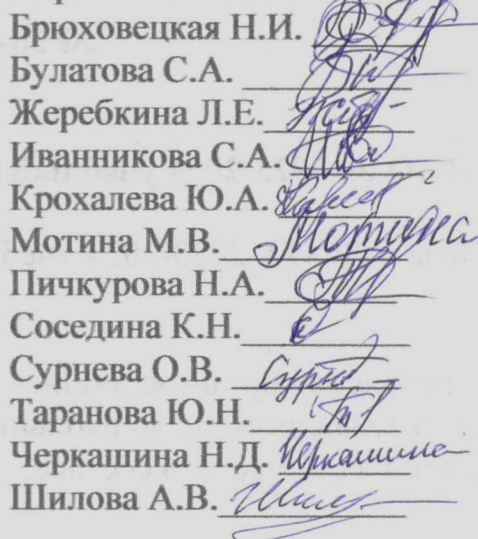 Брюховецкая Н.И.
Булатова С.А.
Жеребкина Л.Е.
Иванникова С.А.
Крохалева Ю.А.
Мотина М.В. Мотина
Пичкурова Н.А.
Соседина К.Н.
Сурнева О.В.
Таранова Ю.Н.
Черкашина Н.Д. Черкашина
Шилова А.В.